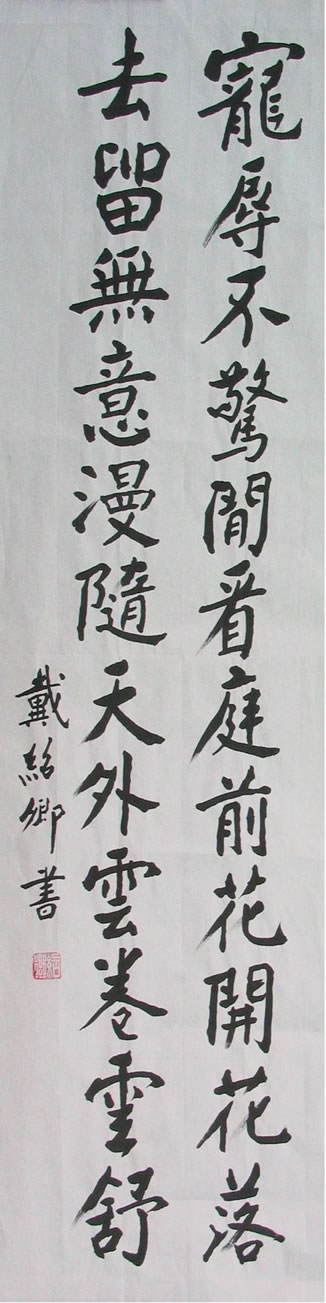 寵辱不驚閒看庭前花開花落
去留無意漫隨天外雲卷雲舒
戴紹卿書